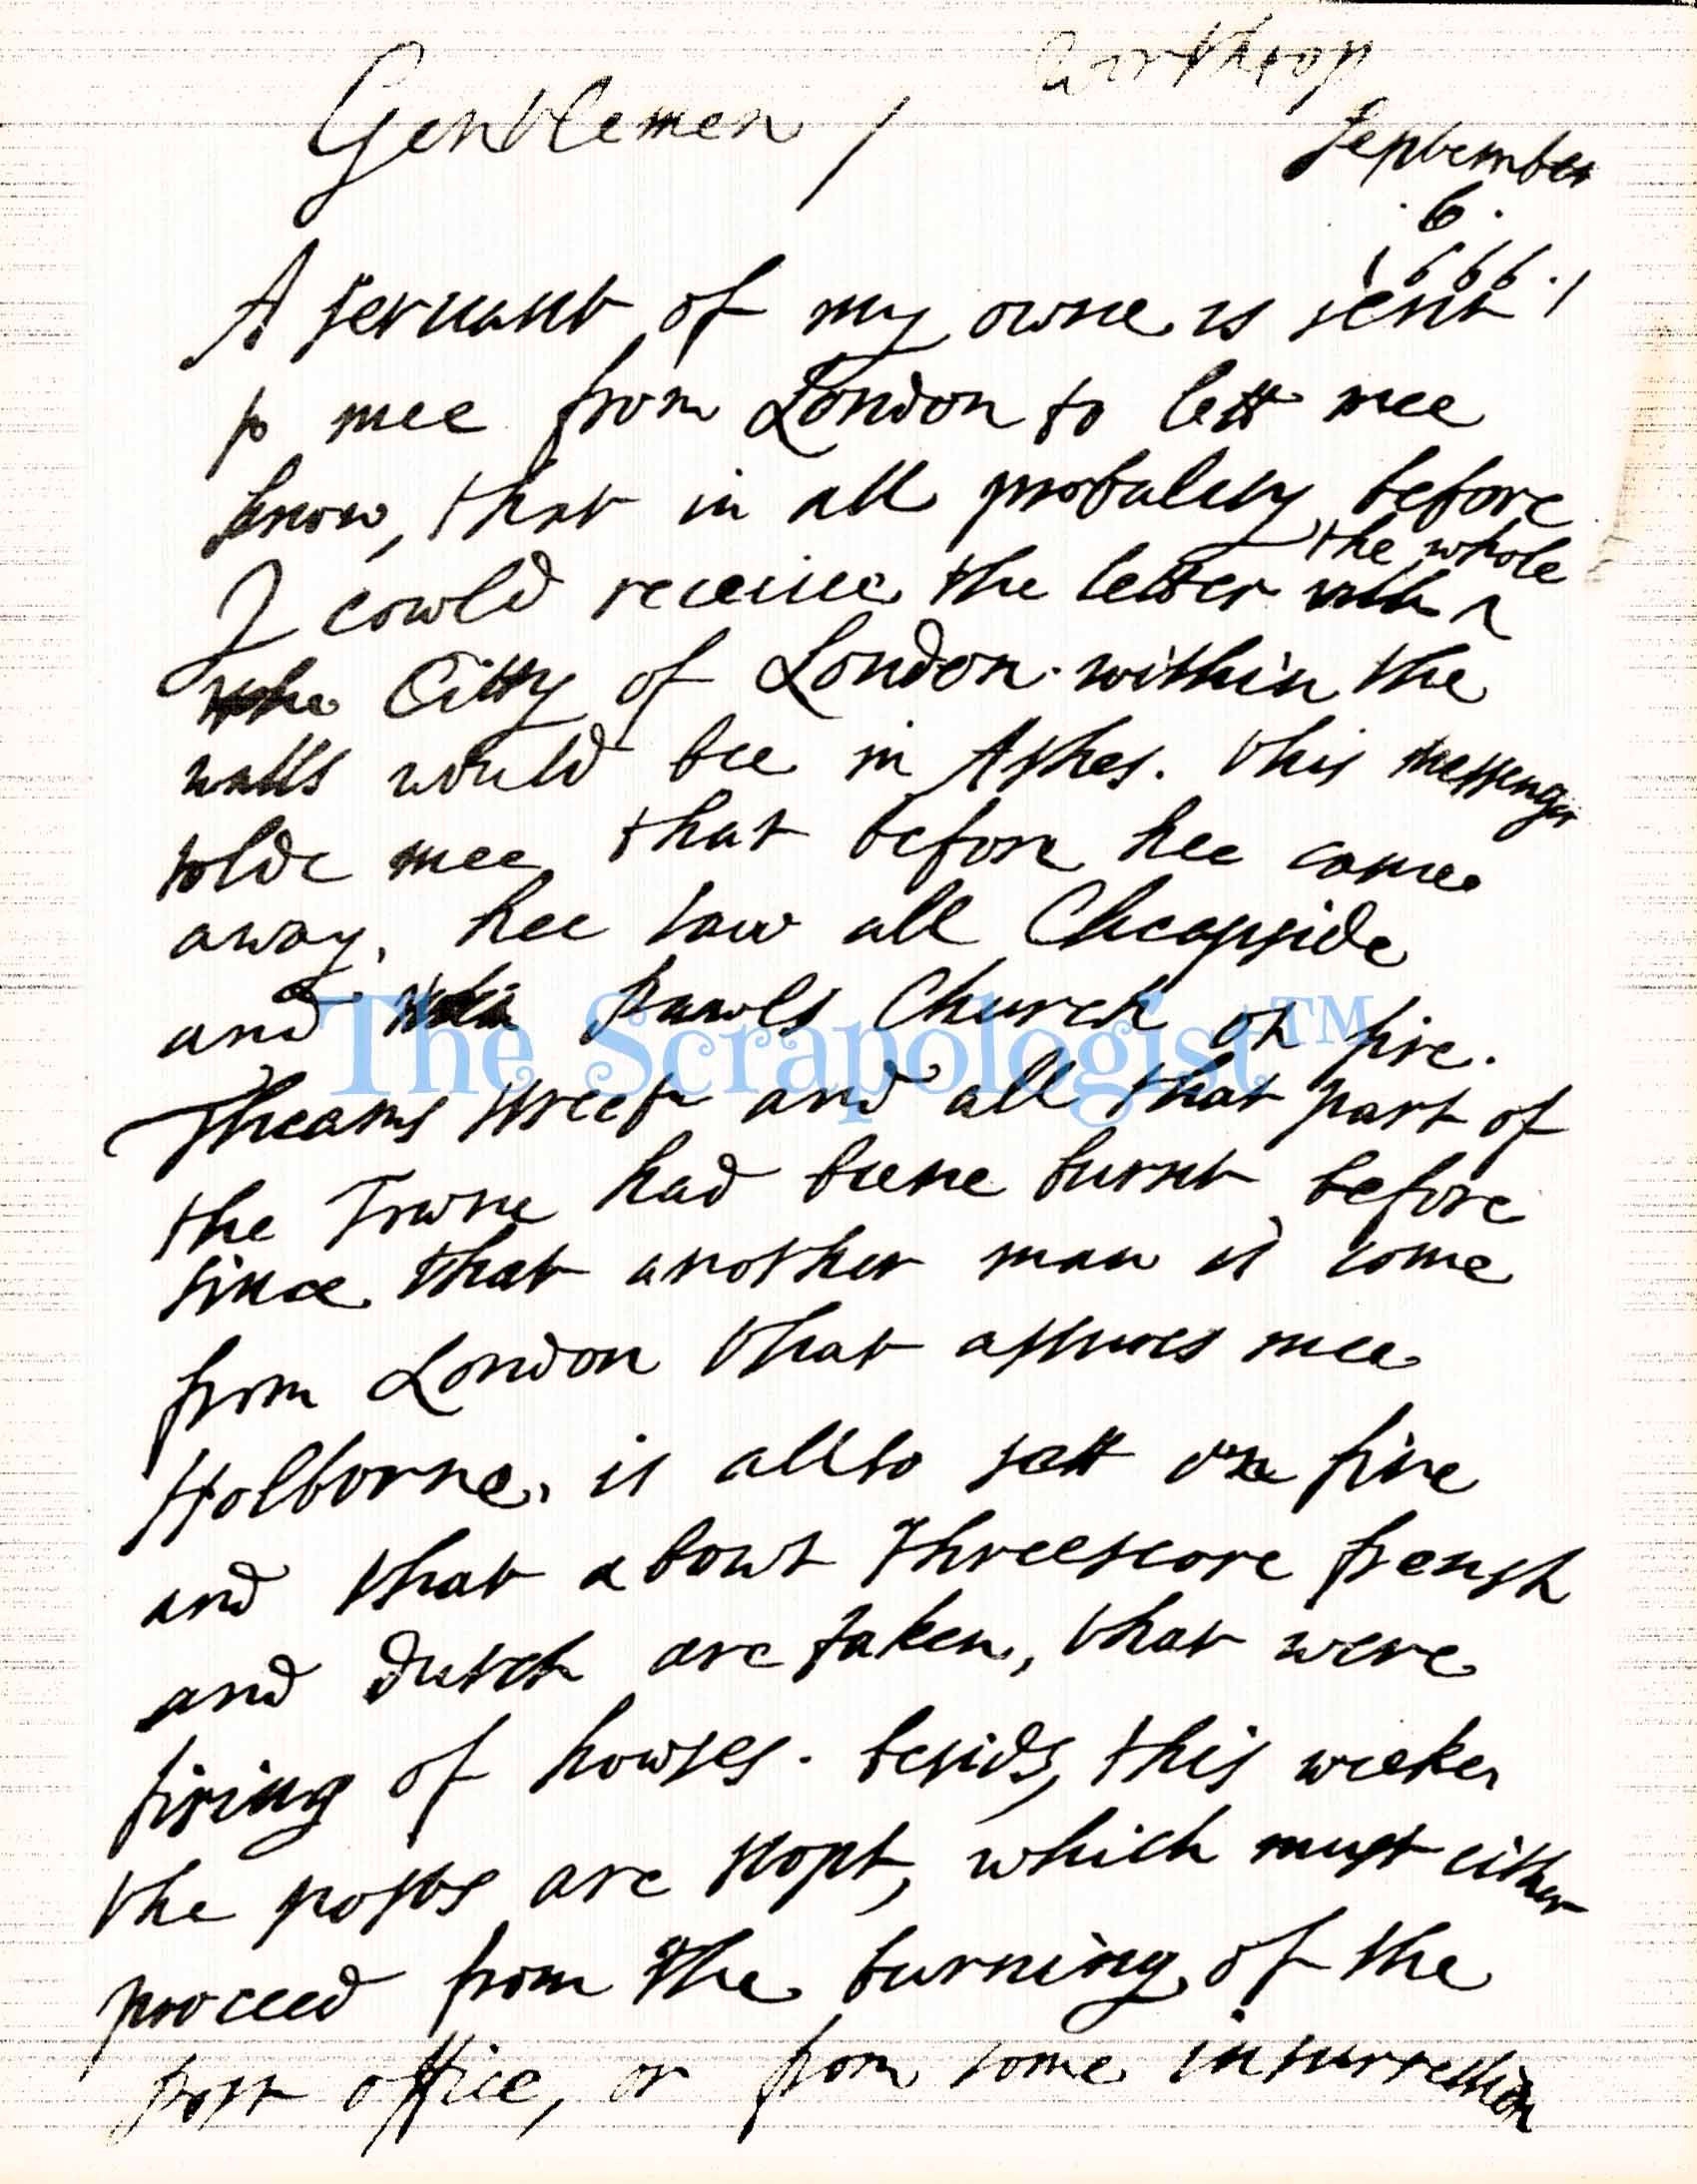 Garthrop
Gentlemen /
September
.6.
1666./
A servant of my owne is sent
to mee from London to lett mee
know, that in all probality before
the whole
I cowld receiue the letter ^
the Citty of London within the
walls would bee in Ashes. this messenger
tolde mee that before hee came
away, hee saw all Cheapside
and Pawls Church on fire.
Theams street and all that part of
the Towne had beene burnt before
since that another man is come
from London that assures mee
Holborne, is allso sett one fire
and that about threescore french
and dutch are taken, that were
firing of howses. besids, this weeke
the posts are stopt, which must either
proceed from the burning of the
post office, or from some insurrection
The Scrapologist™